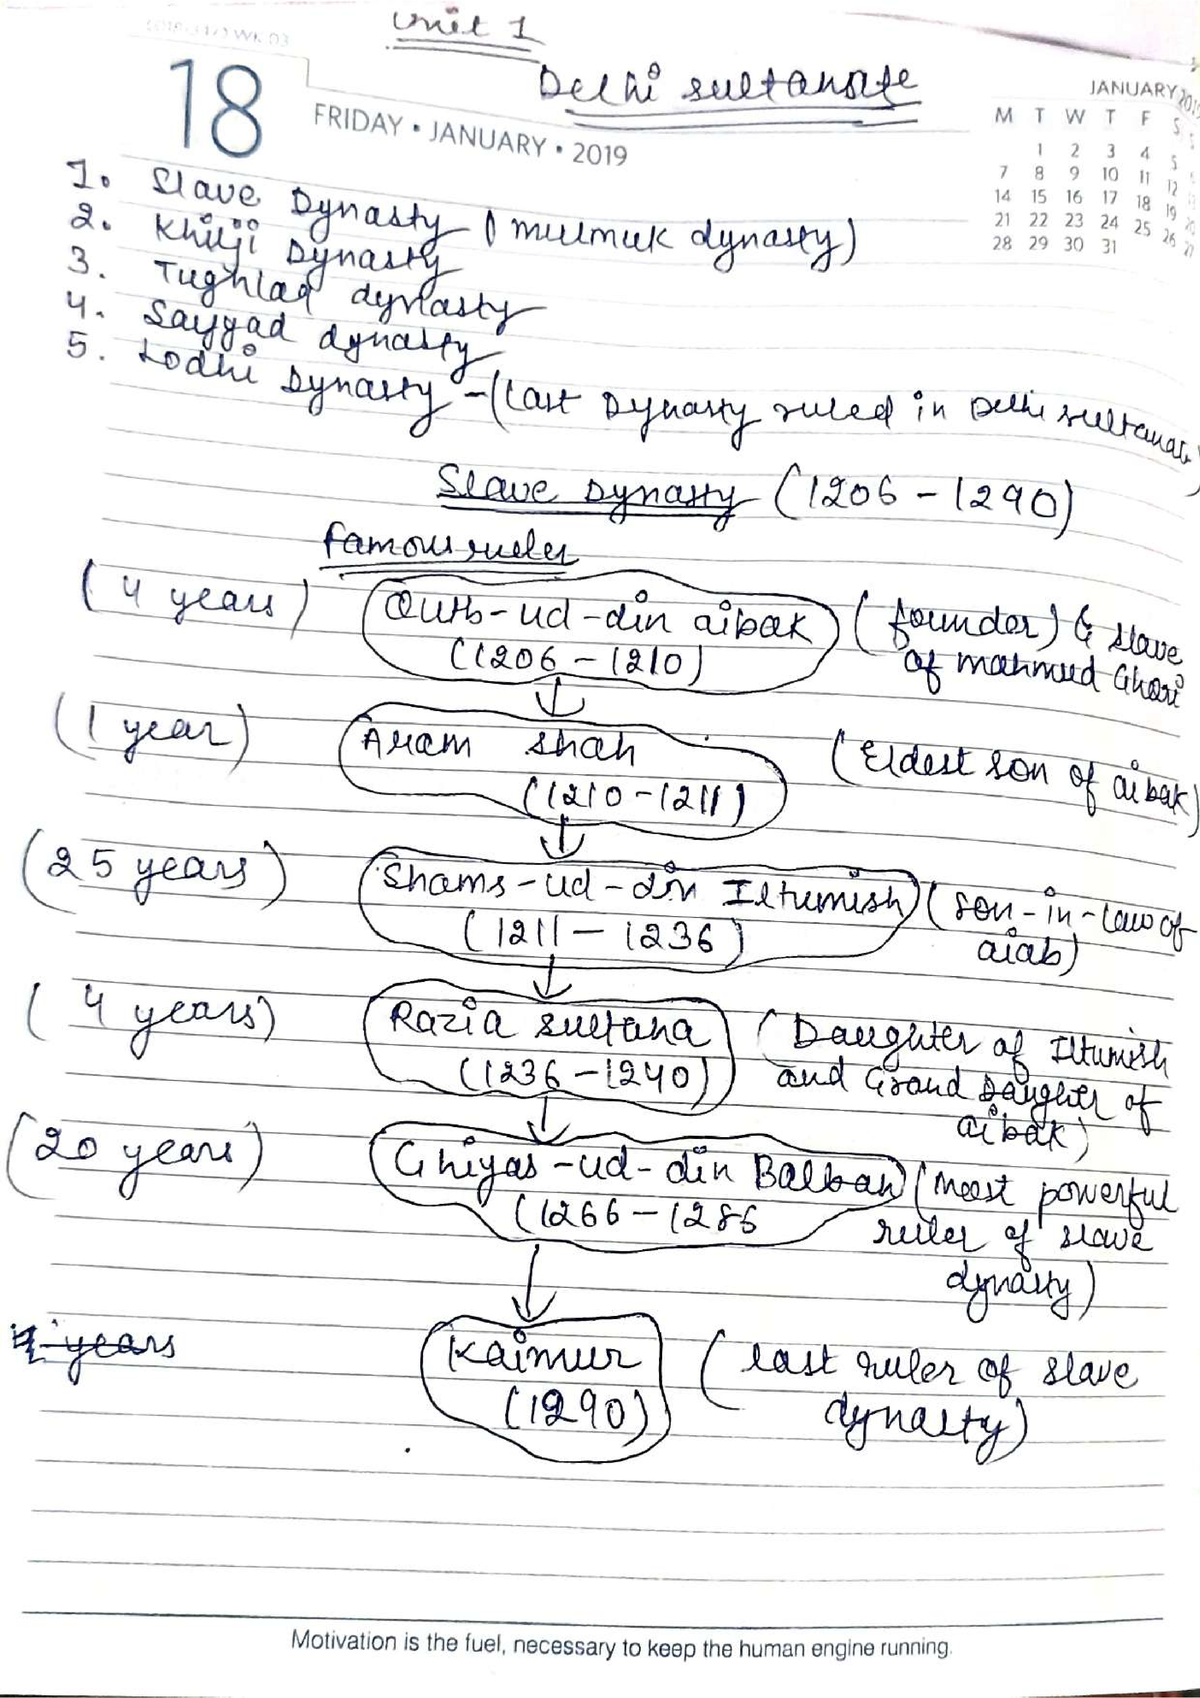 Unit 1
Delhi sultanate
18
FRIDAY • JANUARY • 2019
JANUARY 2019
M T W T F S
1 2 3 4 5
7 8 9 10 11 12
14 15 16 17 18 19
21 22 23 24 25 26
28 29 30 31
1. Slave Dynasty (mulmuk dynasty)
2. Khilji Dynasty
3. Tughlaq dynasty
4. Sayyad dynasty
5. Lodhi Dynasty - (Last Dynasty ruled in Delhi sultanate)
Slave Dynasty (1206 - 1290)
Famous ruler
(4 years) Qutb-ud-din aibak (founder) & slave
(1206 - 1210) of mahmud Ghori
(1 year) Aram shah (Eldest son of aibak)
(1210 - 1211)
(25 years) Shams-ud-din Iltumish (son-in-law of
(1211 - 1236) aiab)
(4 years) Razia sultana (Daughter of Iltumish
(1236 - 1240) and Grand Daughter of
aibak)
(20 years) Ghiyas-ud-din Balban (most powerful
(1266 - 1286 ruler of slave
dynasty)
years Kaimur (last ruler of slave
(1290) dynasty)
Motivation is the fuel, necessary to keep the human engine running.